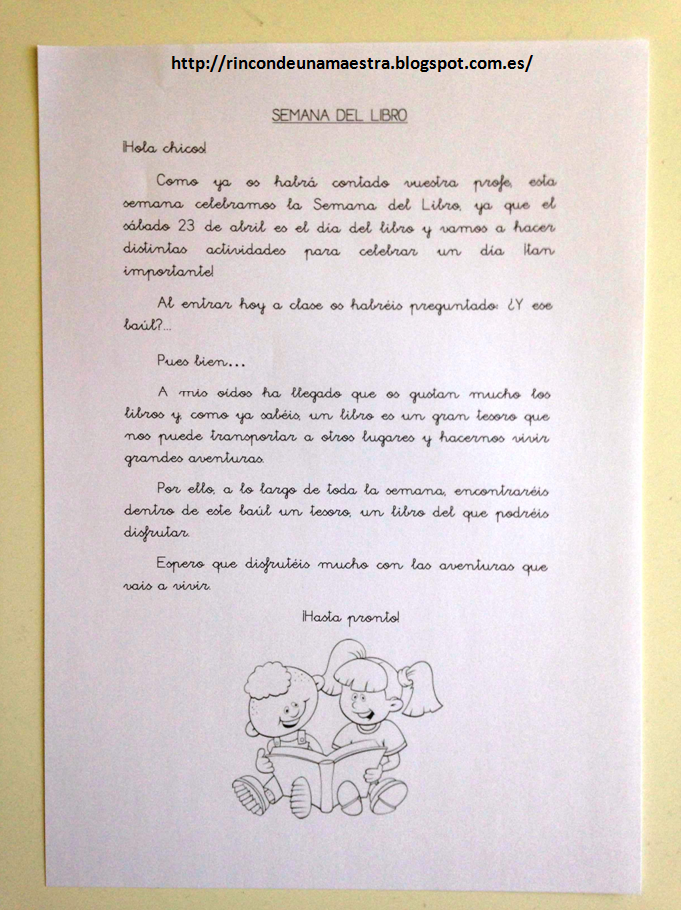 http://rincondeunamaestra.blogspot.com.es/
SEMANA DEL LIBRO
¡Hola chicos!
Como ya os habrá contado vuestra profe, esta
semana celebramos la Semana del Libro, ya que el
sábado 23 de abril es el día del libro y vamos a hacer
distintas actividades para celebrar un día ¡tan
importante!
Al entrar hoy a clase os habréis preguntado: ¿Y ese
baúl?...
Pues bien...
A mis oídos ha llegado que os gustan mucho los
libros y, como ya sabéis, un libro es un gran tesoro que
nos puede transportar a otros lugares y hacernos vivir
grandes aventuras.
Por ello, a lo largo de toda la semana, encontraréis
dentro de este baúl un tesoro, un libro del que podréis
disfrutar.
Espero que disfrutéis mucho con las aventuras que
vais a vivir.
¡Hasta pronto!